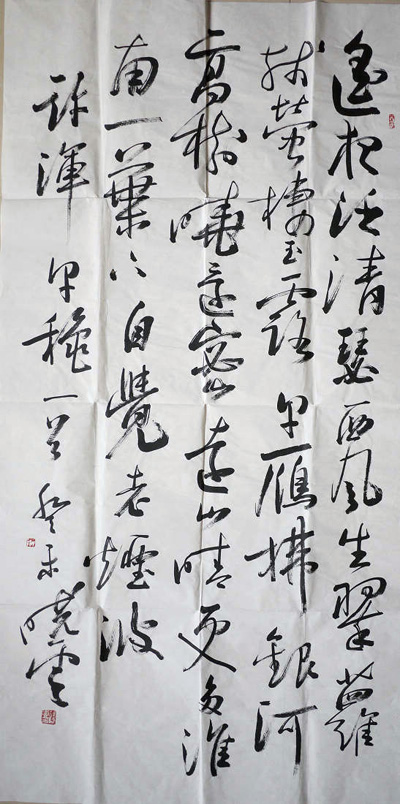 遙夜泛清瑟西風生翠蘿
殘螢棲玉露早雁拂銀河
高樹曉還密遠山晴更多淮
南一葉下自覺老煙波
許渾早穐一首癸未曉雲